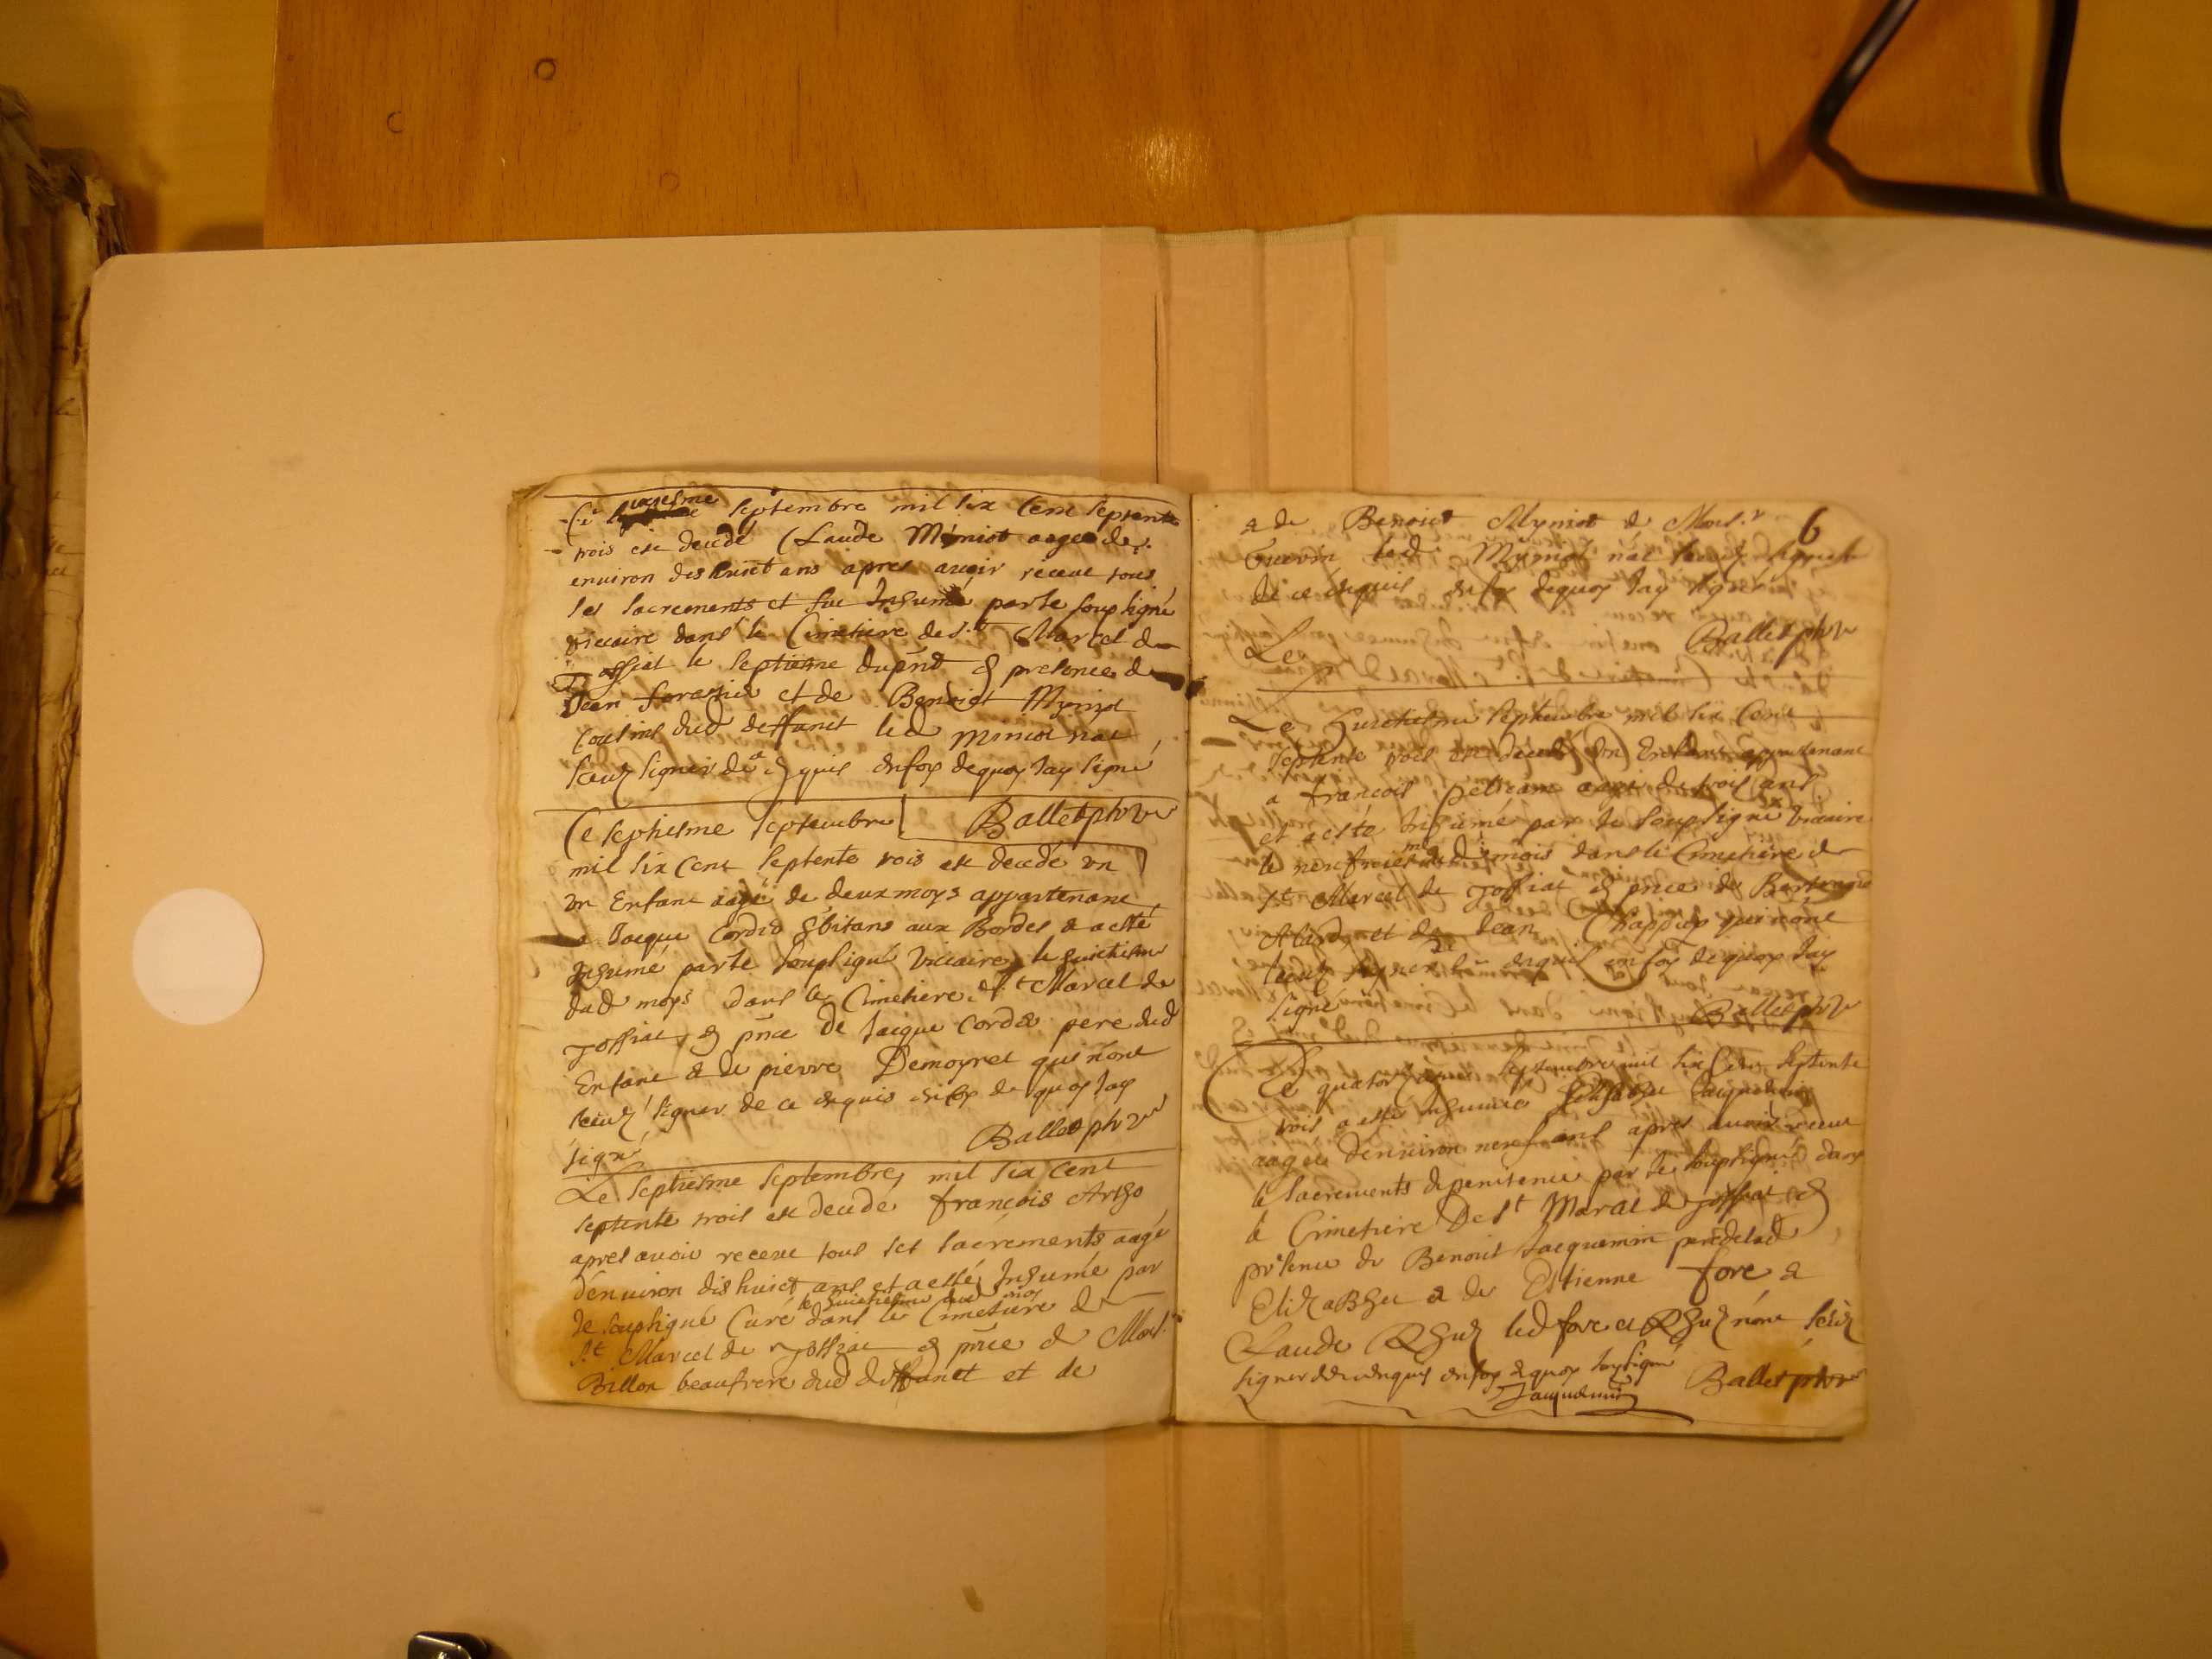 Ce sixiesme septembre mil six Cent septente
trois est decedé Claude Myniot aagee de
environ dishuict ans apres avoir receue tous
les sacrements et fut Inhumé par le soupsigné
viccaire dans le Cimetiere de S.t Marcel de
Joffiat le septiesme du pñt & presence de
Jean foresties et de Benoict Myniot
cousins dud deffunct led Miniot nat
sceuz signer de ce enquis en foy dequoy Jay signé
Ce septiesme septembre Ballet ptre v
mil six Cent septente trois est decedé un
un Enfant aagé de deux moys appartenant
a Jacque Cordier habitans aux Bordes & a esté
Inhumé par le soupsigné viccaire le huictiesme
dud moys dans le Cimetiere de S.t Marcel de
Joffiat & pñce de Jacque Cordier pere dud
Enfant & de pierre Demoyret qui n'ont
sceuz signer de ce enquis en foy de quoy Jay
signé Ballet ptre v
Le septiesme septembre mil six cent
septente trois est decede françois
apres avoir receue tous ses sacrements aagé
d'environ dishuict ans et a esté Inhumé par
le huictiesme dud moy
Je soupsigné Curé dans le Cimetiere de
S.t Marcel de Joffiat & pñce de Mon.r
Billon beaufrere dud deffunct et de
6
& de Benoict Myniot & Mons.r
Guerin led Myniot nat sceuz signer
de ce enquis en foy dequoy Jay signé
Ballet ptre v
Le
Le huictiesme septembre mil six Cent
septente trois est decedé un Enfant appartenant
a françois aagé de trois ans
et a esté Inhumé par le soupsigné viccaire
le neufviesme dud mois dans le Cimetiere de
S.t Marcel de Joffiat & pñce de
et de Jean Chappuy qui n'ont
sceuz signer de ce enquis en foy dequoy Jay
signé Ballet ptre v
Le quatorziesme septembre mil six Cent septente
trois a esté Inhumée Elizabhet Jaquemin
aagée d'environ neuf ans apres avoir receue
le sacrements de penitence par le soupsigné dans
le Cimetiere De S.t Marcel de Joffiat &
presence de Benoit Jacquemin pere de lad
Elizabhet & de Estienne fore &
Claude led fore et n'ont sceuz
signer de ce enquis en foy dequoy Jay signé
Jaquemin Ballet ptre v